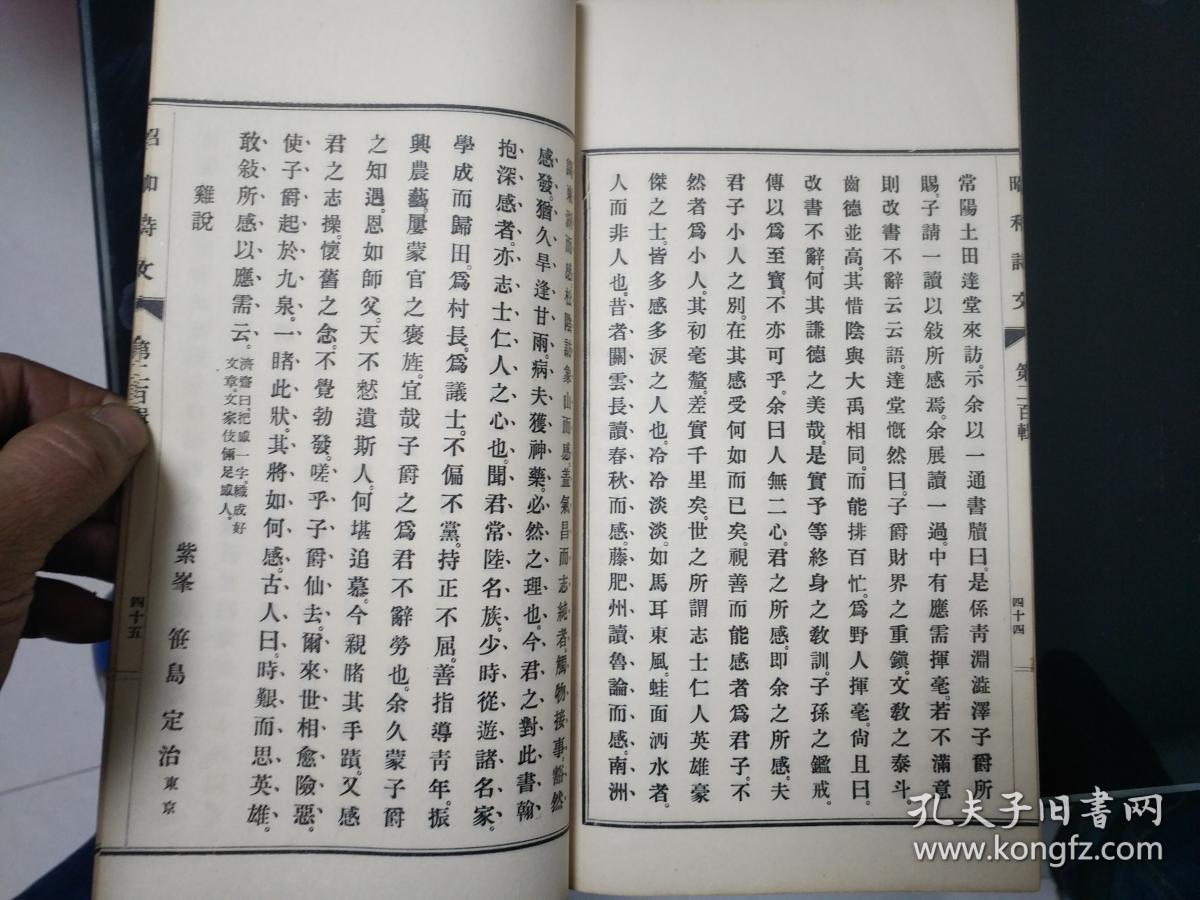 昭和詩文 第二百輯
四十四
常陽土田達堂來訪。示余以一通書牘曰。是係靑淵澁澤子爵所
賜。子請一讀以敍所感焉。余展讀一過。中有應需揮毫。若不滿意
則改書不辭云云語。達堂慨然曰。子爵財界之重鎭。文敎之泰斗。
齒德並高。其惜陰與大禹相同。而能排百忙。爲野人揮毫。尙且曰。
改書不辭。何其謙德之美哉。是實予等終身之敎訓。子孫之鑑戒。
傳以爲至寶。不亦可乎。余曰人無二心。君之所感。卽余之所感。夫
君子小人之別。在其感受何如而已矣。視善而能感者爲君子。不
然者爲小人。其初毫釐。差實千里矣。世之所謂志士仁人英雄豪
傑之士。皆多感多淚之人也。冷冷淡淡。如馬耳東風。蛙面洒水者。
人而非人也。昔者關雲長讀春秋而感。藤肥州讀魯論而感。南洲
謁東湖而感。松陰訪象山而感。蓋氣昌而志純者。觸物接事。豁然
感發。猶久旱逢甘雨。病夫獲神藥。必然之理也。今君之對此書翰
抱深感者。亦志士仁人之心也。聞君常陸名族。少時從遊諸名家。
學成而歸田。爲村長。爲議士。不偏不黨。持正不屈。善指導靑年。振
興農藝。屢蒙官之褒旌。宜哉子爵之爲君不辭勞也。余久蒙子爵
之知遇。恩如師父。天不憖遺斯人。何堪追慕。今親睹其手蹟。又感
君之志操。懷舊之念。不覺勃發。嗟乎子爵仙去。爾來世相愈險惡。
使子爵起於九泉。一睹此狀。其將如何感。古人曰。時艱而思英雄。
敢敍所感以應需云。
濟齋曰。把感一字。織成好
文章。文家伎倆足感人。
雞說
紫峯 笹島定治 東京
昭和詩文 第二百輯
四十五
孔夫子旧书网
www.kongfz.com